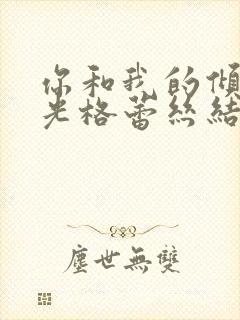 你和我的傾
光格蕾絲結
塵世無雙